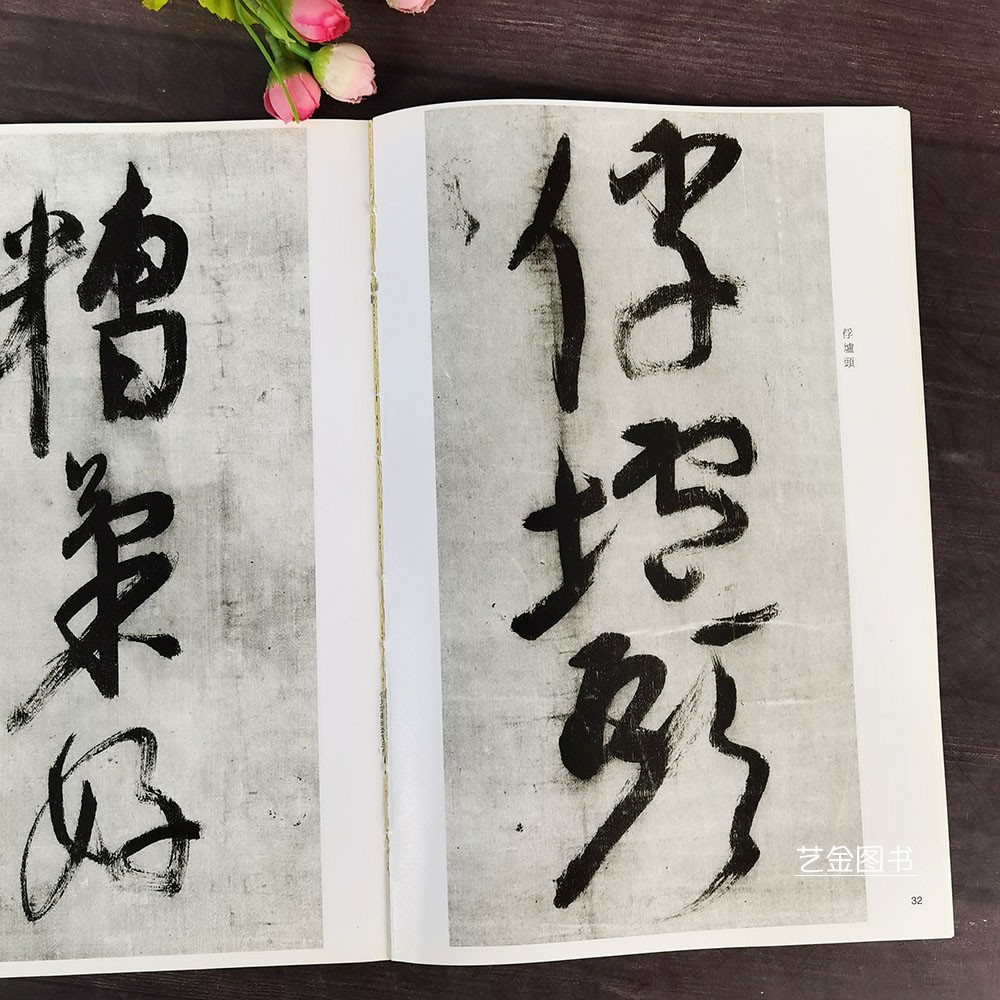 俘壚頭
俘壚頭
糟
好
艺金图书
32